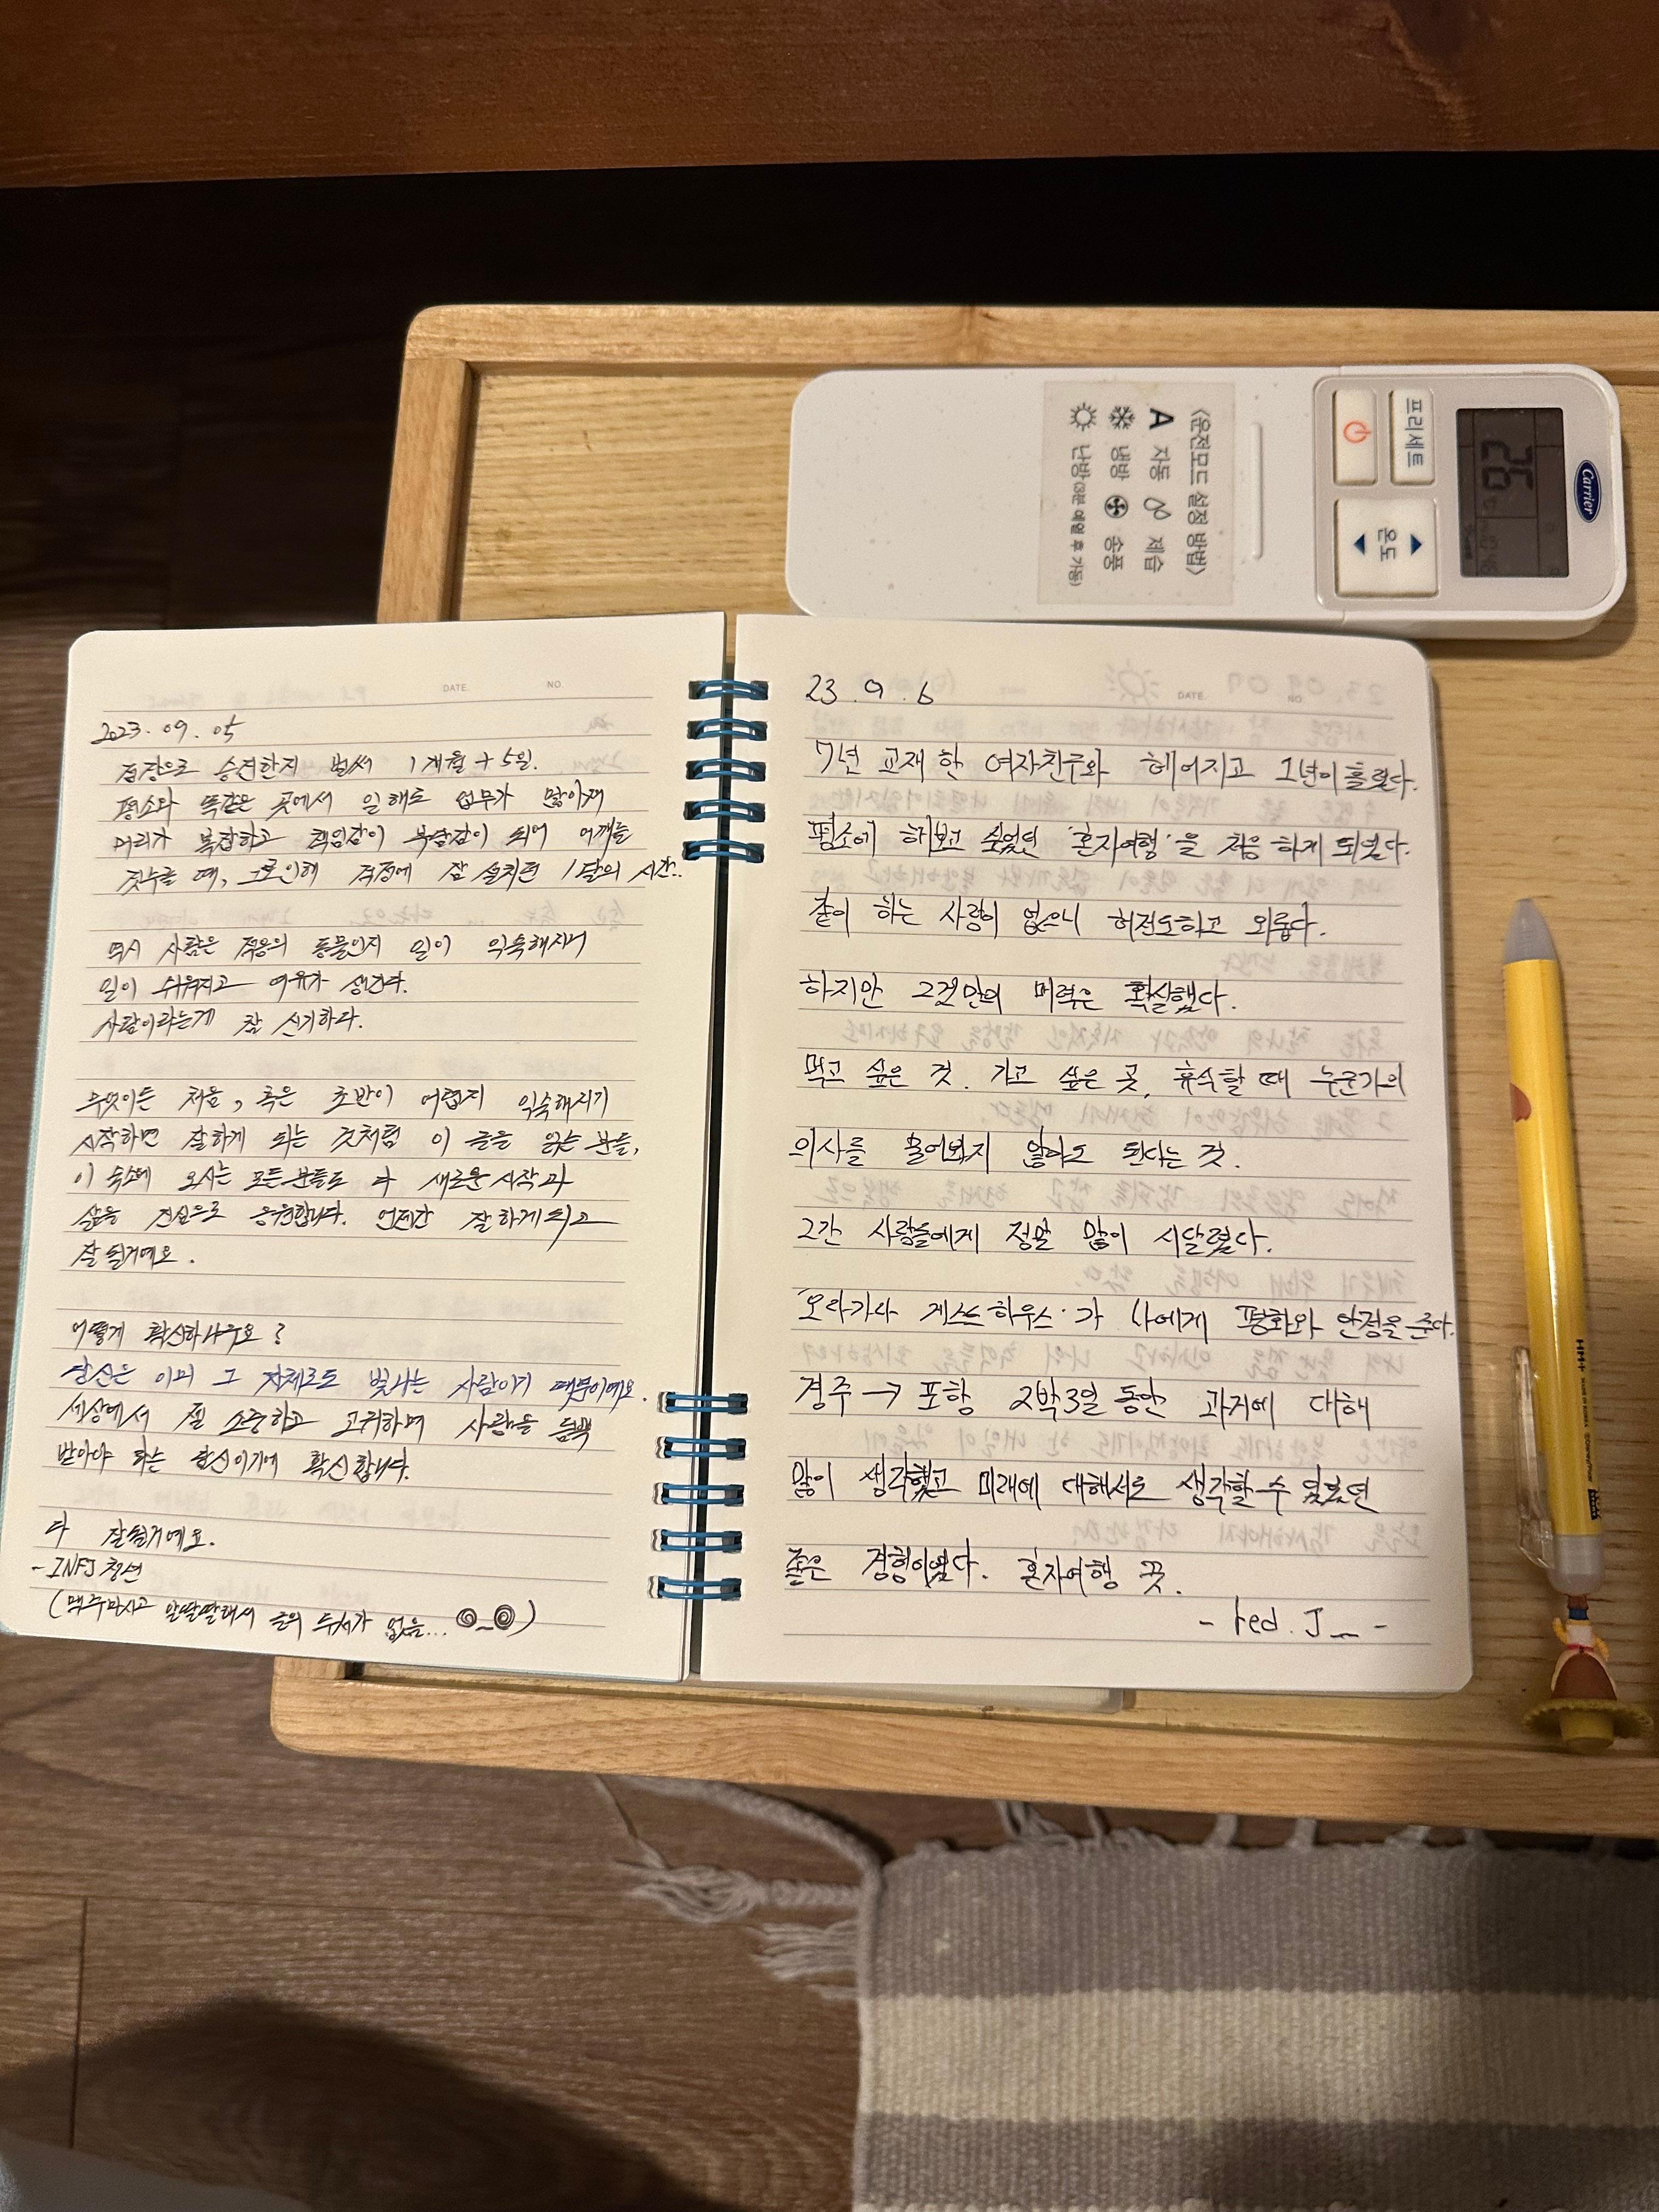 Carrier
26
프리세트
온도
<운전모드 설정 방법>
A 자동 제습
냉방 송풍
난방 (3분 예열 후 가동)
DATE. NO.
2023. 09. 05
점장으로 승진한지 벌써 1개월 + 5일.
평소와 똑같은 곳에서 일해도 업무가 많아져
머리가 복잡하고 책임감이 부담감이 되어 어깨를
짓누를 때, 그로인해 걱정에 잠 설치면 1달의 시간..
역시 사람은 적응의 동물인지 일이 익숙해지니
일이 쉬워지고 여유가 생긴다.
사람이라는게 참 신기하다.
무엇이든 처음, 혹은 초반이 어렵지 익숙해지기
시작하면 잘하게 되는 것처럼 이 글을 읽는 분들,
이 숙소에 오시는 모든분들도 다 새로운 시작과
삶을 진심으로 응원합니다. 언젠간 잘하게되고
잘 될거에요.
어떻게 확신하냐구요?
당신은 이미 그 자체로도 빛나는 사람이기 때문이에요.
세상에서 젤 소중하고 고귀하며 사랑을 듬뿍
받아야 하는 당신이기에 확신합니다.
다 잘될거에요.
- INFJ
(맥주마시고 알딸딸해서 글의 두서가 없음... ◎_◎)
DATE. NO.
23. 9. 6
7년 교재한 여자친구와 헤어지고 1년이 흘렀다.
평소에 해보고 싶었던 '혼자여행'을 처음 하게 되었다.
같이 하는 사람이 없으니 허전도하고 외롭다.
하지만 그것만의 매력은 확실했다.
먹고 싶은 것. 가고 싶은 곳, 휴식할 때 누군가의
의사를 물어보지 않아도 된다는 것.
그간 사람들에게 정말 많이 시달렸다.
'오라가다 게스트하우스'가 나에게 평화와 안정을 준다.
경주 → 포항 2박3일 동안 과거에 대해
많이 생각했고 미래에 대해서도 생각할 수 있었던
좋은 경험이었다. 혼자여행 끗.
- red. J -